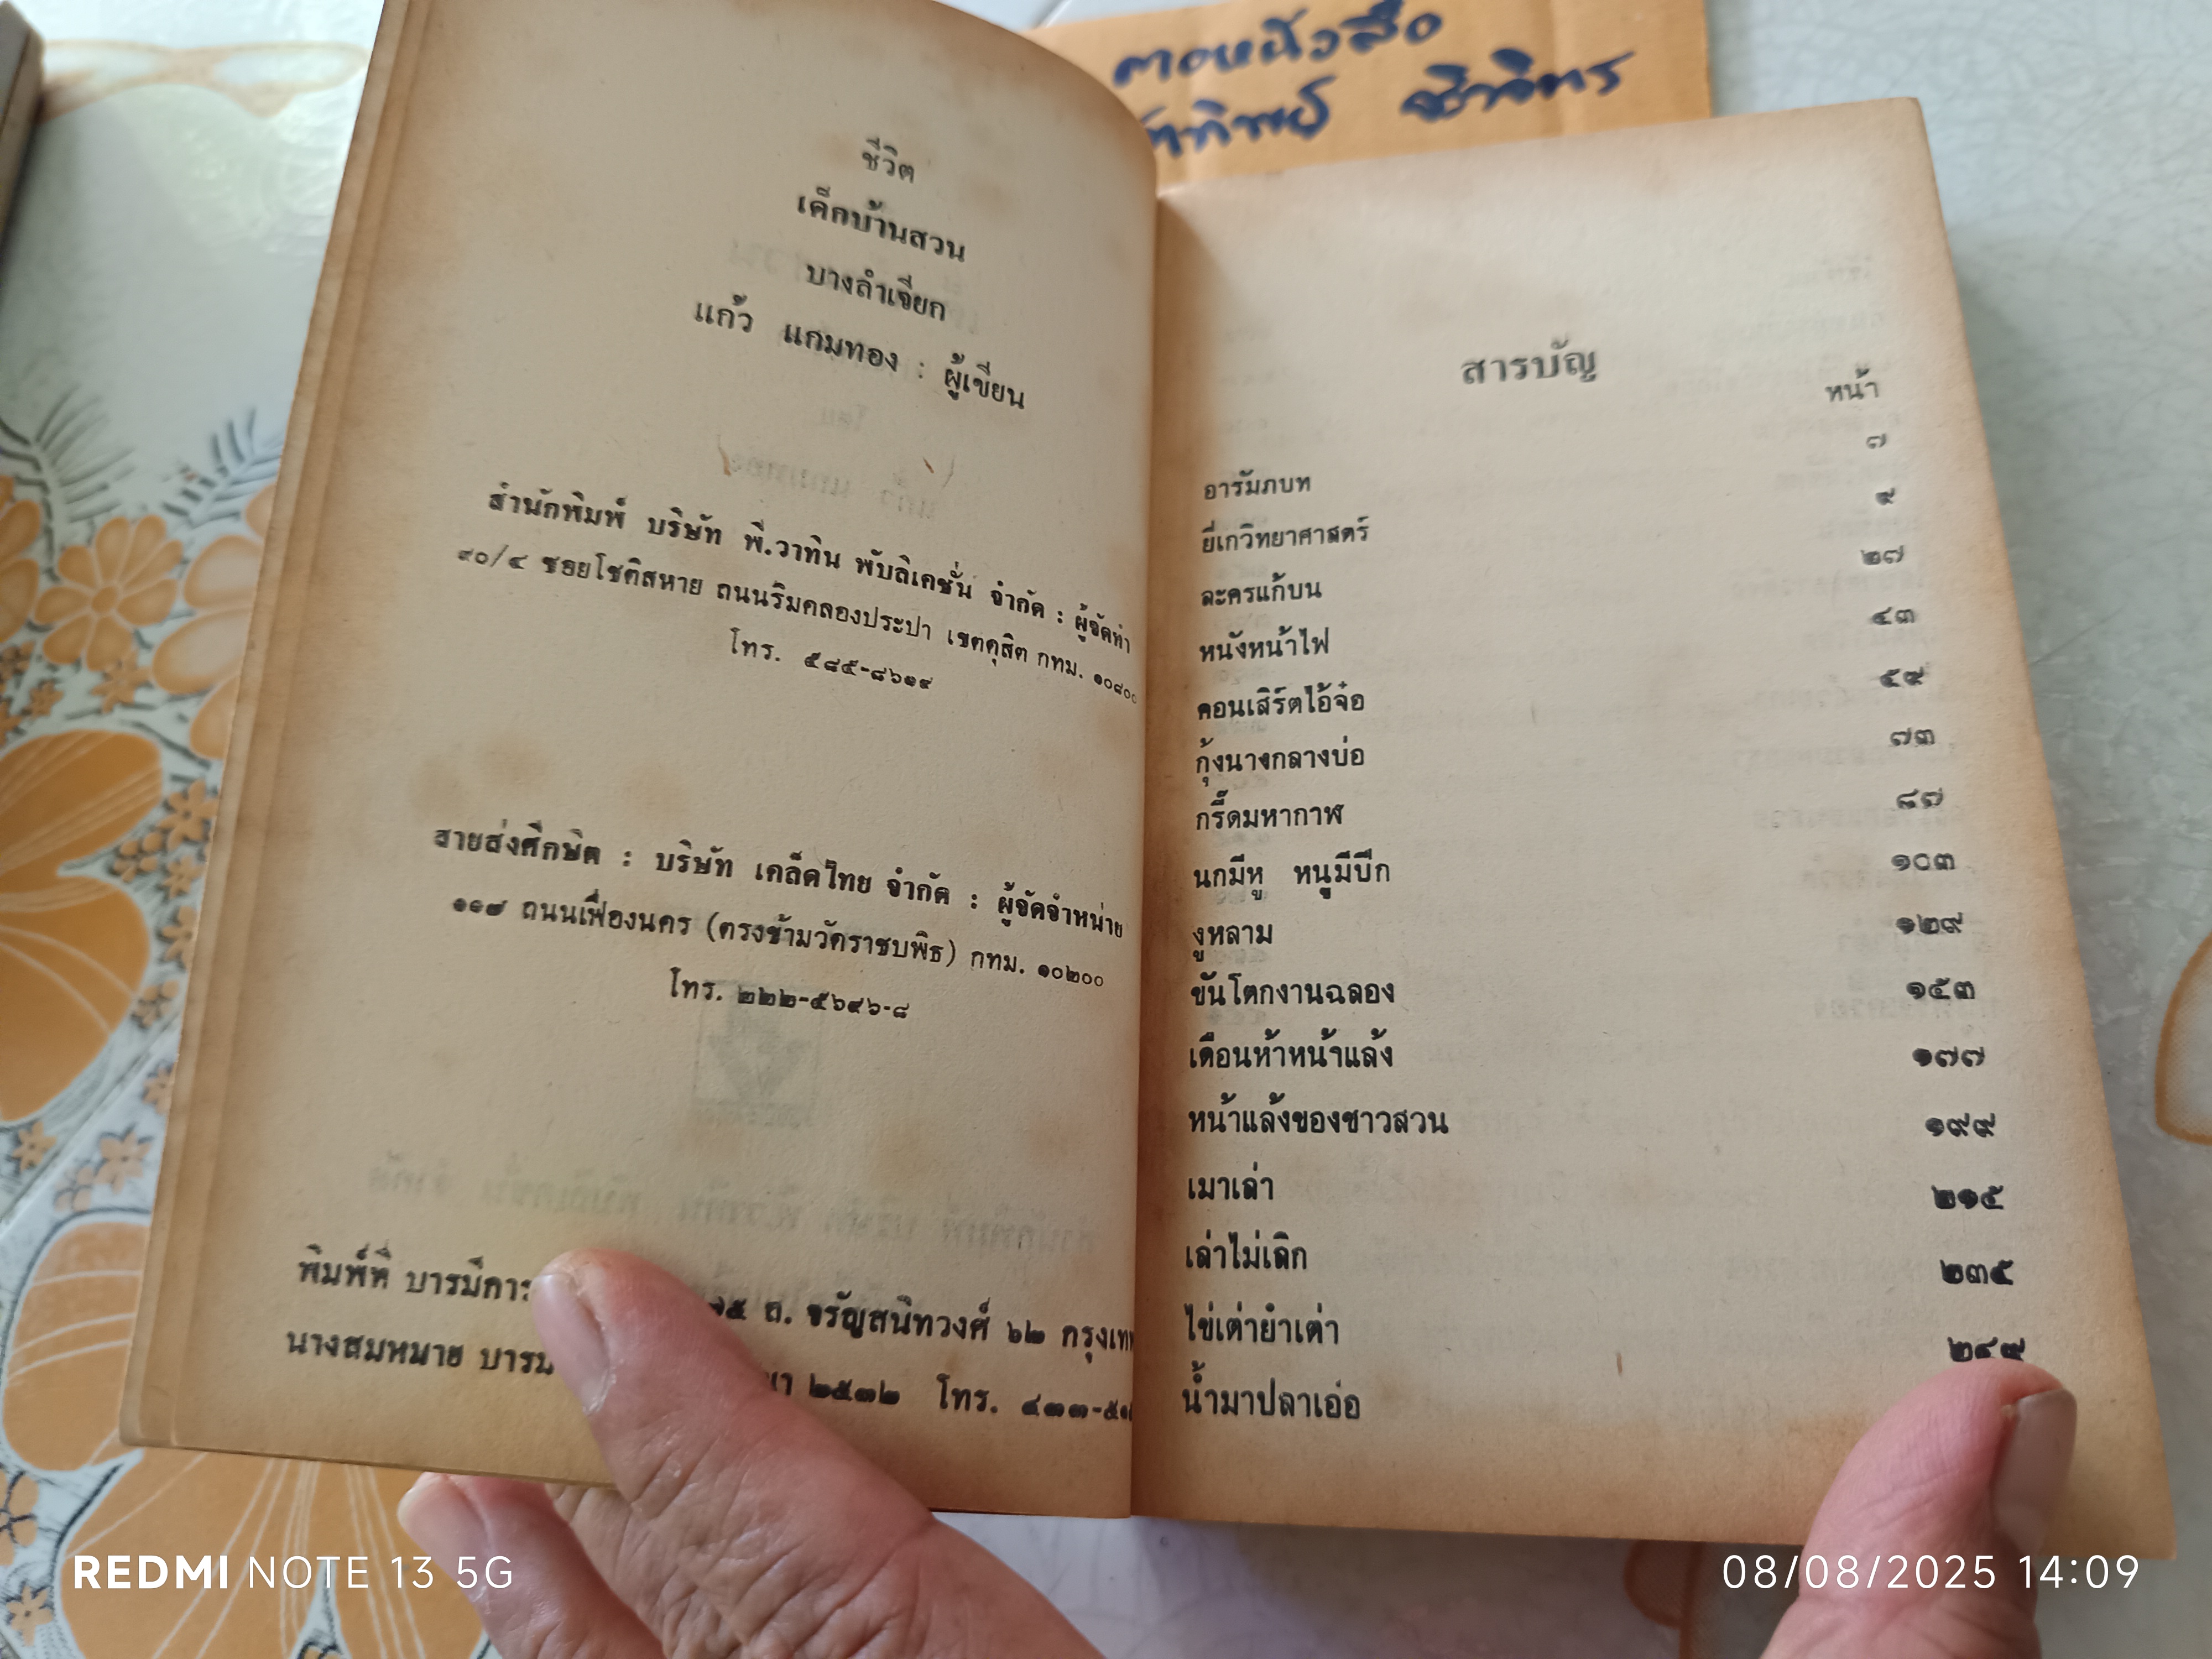 ตอหนังสือ
ชีวิต
เด็กบ้านสวน
บางลำเจียก
แก้ว แกมทอง : ผู้เขียน
สำนักพิมพ์ บริษัท พี.วาทิน พับลิเคชั่น จำกัด : ผู้จัดทำ
๙๐/๔ ซอยโชติสหาย ถนนริมคลองประปา เขตดุสิต กทม. ๑๐๘๐๐
โทร. ๕๘๕-๘๖๑๙
สายส่งศึกษิต : บริษัท เคล็ดไทย จำกัด : ผู้จัดจำหน่าย
๑๑๗ ถนนเฟื่องนคร (ตรงข้ามวัดราชบพิธ) กทม. ๑๐๒๐๐
โทร. ๒๒๒-๕๖๙๖-๘
พิมพ์ที่ บารมีการ ถ. จรัญสนิทวงศ์ ๖๒
นางสมหมาย ๒๕๓๒ โทร. ๔๓๓-
สารบัญ
หน้า
อารัมภบท ๗
ยี่เกวิทยาศาสตร์ ๙
ละครแก้บน ๒๗
หนังหน้าไฟ ๔๓
คอนเสิร์ตไอ้จ๋อ ๕๙
กุ้งนางกลางบ่อ ๗๓
กรี๊ดมหากาฬ ๘๗
นกมีหู หนูมีปีก ๑๐๓
งูหลาม ๑๒๙
ขันโตกงานฉลอง ๑๕๓
เดือนห้าหน้าแล้ง ๑๗๗
หน้าแล้งของชาวสวน ๑๙๙
เมาเล่า ๒๑๕
เล่าไม่เลิก ๒๓๕
ไข่เต่ายำเต่า ๒๔๙
น้ำมาปลาเอ่อ
REDMI NOTE 13 5G
08/08/2025 14:09